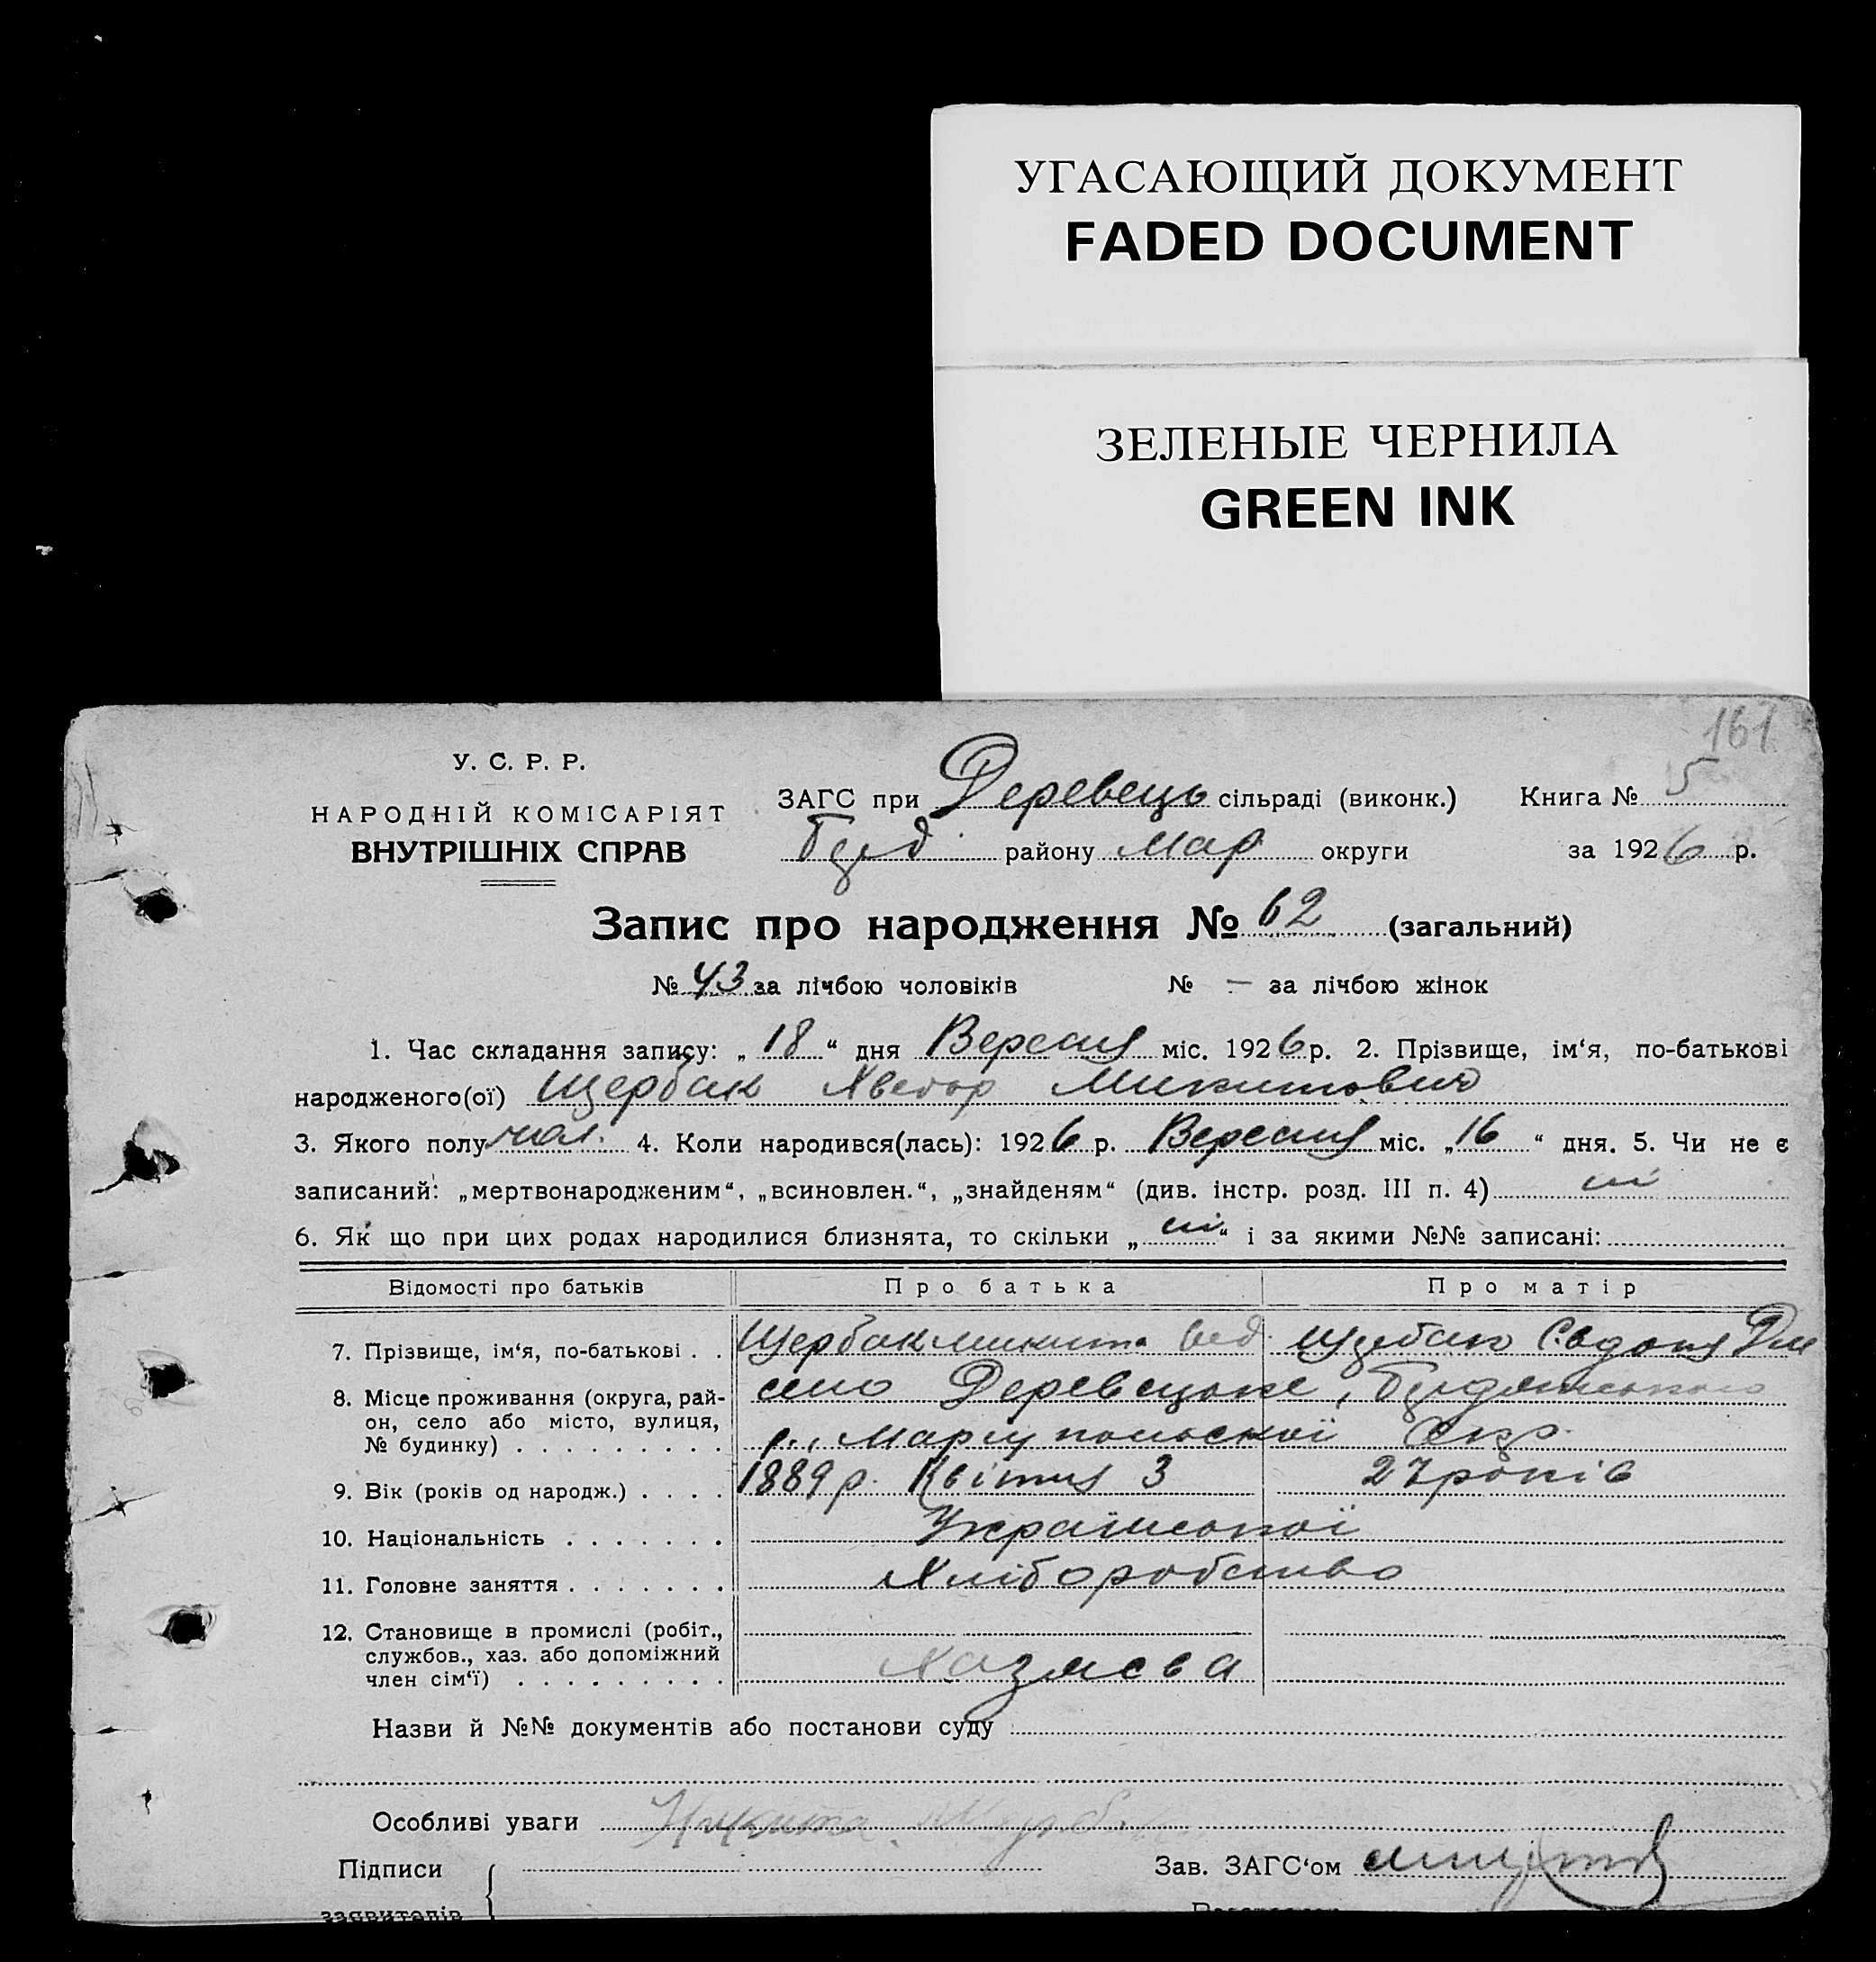 УГАСАЮЩИЙ ДОКУМЕНТ
FADED DOCUMENT
ЗЕЛЕНЫЕ ЧЕРНИЛА
GREEN INK
161
У. С. Р. Р.
НАРОДНІЙ КОМІСАРІЯТ
ВНУТРІШНІХ СПРАВ
ЗАГС при Деревець сільраді (виконк.) Книга № 5
Буд району Мар округи за 1926 р.
Запис про народження № 62 (загальний)
№ 43 за лічбою чоловіків № — за лічбою жінок
1. Час складання запису: „ 18 “ дня Вересня міс. 1926 р. 2. Прізвище, ім‘я, по-батькові
народженого(ої) Щербак Хведор Микитович
3. Якого полу чол. 4. Коли народився(лась): 1926 р. Вересня міс. „ 16 “ дня. 5. Чи не є
записаний: „мертвонародженим“, „всиновлен.“, „знайденям“ (див. інстр. розд. III п. 4) ні
6. Як що при цих родах народилися близнята, то скільки „ ні “ і за якими №№ записані:
Відомості про батьків Про батька Про матір
7. Прізвище, ім‘я, по-батькові . . Щербак Микита Щербак Євдокія
8. Місце проживання (округа, рай- село Деревецьке, Будянського
он, село або місто, вулиця,
№ будинку) . . . . . . . . . р., Маріупольської Окр.
9. Вік (років од народж.) . . . . 1889 р. Квітня 3 27 років
10. Національність . . . . . . . Української
11. Головне заняття . . . . . . . Хліборобство
12. Становище в промислі (робіт.,
службов., хаз. або допоміжний
член сім‘ї) . . . . . . . . . Хазяєва
Назви й №№ документів або постанови суду
Особливі уваги Никита
Підписи Зав. ЗАГС‘ом
заявителів